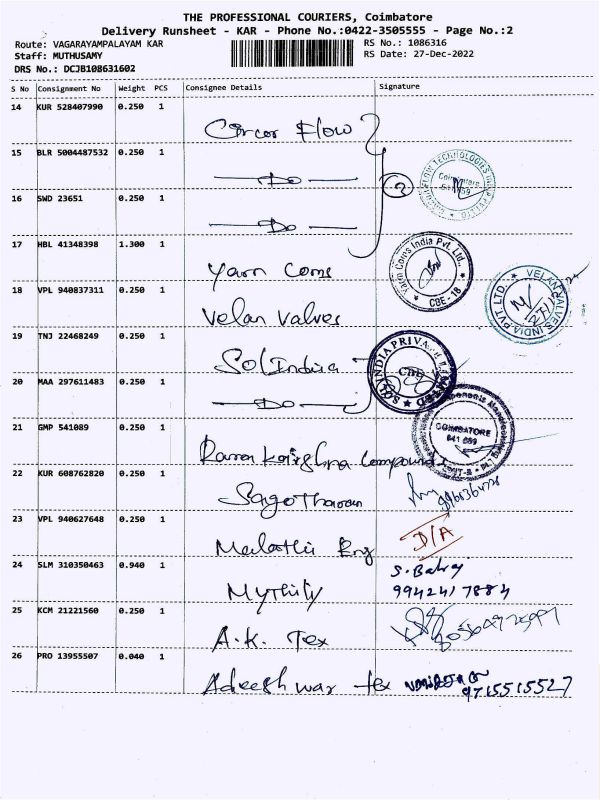 THE PROFESSIONAL COURIERS, Coimbatore
Delivery Runsheet - KAR - Phone No.:0422-3505555 - Page No.:2
Route: VAGARAYAMPALAYAM KAR RS No.: 1086316
Staff: MUTHUSAMY RS Date: 27-Dec-2022
DRS No.: DCJB108631602
S No Consignment No Weight PCS Consignee Details Signature
14 KUR 528407990 0.250 1 Circor Flow
15 BLR 5004487532 0.250 1 Do
16 SWD 23651 0.250 1 Do
3
17 HBL 41348398 1.300 1 Yarn Coms
Yarn Coms India Pvt. Ltd. CBE - 18
18 VPL 940837311 0.250 1 Velan Valves
VELAN VALVES INDIA PVT. LTD.
19 TNJ 22468249 0.250 1 Sol India
20 MAA 297611483 0.250 1 Do
SOL INDIA PRIVATE LIMITED CBE
21 GMP 541089 0.250 1 Ramakrishna Compound
COIMBATORE
641 659
22 KUR 608762820 0.250 1 Sagotharan
23 VPL 940627648 0.250 1 Malathi Eng D/A
24 SLM 310350463 0.940 1 Mythily S. Balraj
9942417884
25 KCM 21221560 0.250 1 A.K. Tex
26 PRO 13955507 0.040 1 Adeeshwar tex
9715515527